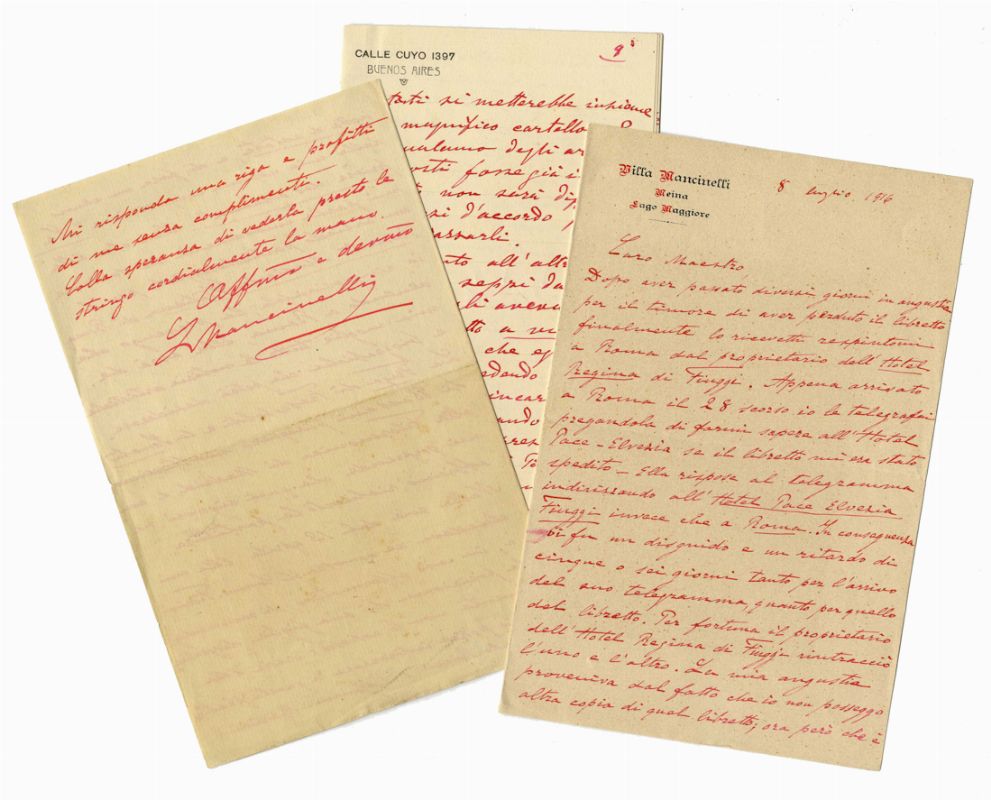 Mi risponda una riga e profitti
di me senza complimenti.
Colla speranza di vederla presto le
stringo cordialmente la mano.
Affmo e devmo
LMancinelli
CALLE CUYO 1397
BUENOS AIRES
9
si metterebbe insieme
magnifico cartello
degli
fosse già
non sarà
si d'accordo
all'
seppi
a
che
Villa Mancinelli
Meina
Lago Maggiore
8 luglio 1916
Caro Maestro,
Dopo aver passato diversi giorni in angustie
per il timore di aver perduto il libretto
finalmente lo ricevetti respintomi
a Roma dal proprietario dell'Hotel
Regina di Fiuggi. Appena arrivato
a Roma il 28 scorso io le telegrafai
pregandola di farmi sapere all'Hotel
Pace-Elvezia se il libretto mi era stato
spedito – Ella rispose al telegramma
indirizzando all'Hotel Pace Elvezia
Fiuggi invece che a Roma. In conseguenza
vi fu un disguido e un ritardo di
cinque o sei giorni tanto per l'arrivo
del suo telegramma, quanto per quello
del libretto. Per fortuna il proprietario
dell'Hotel Regina di Fiuggi rintracciò
l'uno e l'altro. La mia angustia
proveniva dal fatto che io non posseggo
altra copia di quel libretto; ora però che è